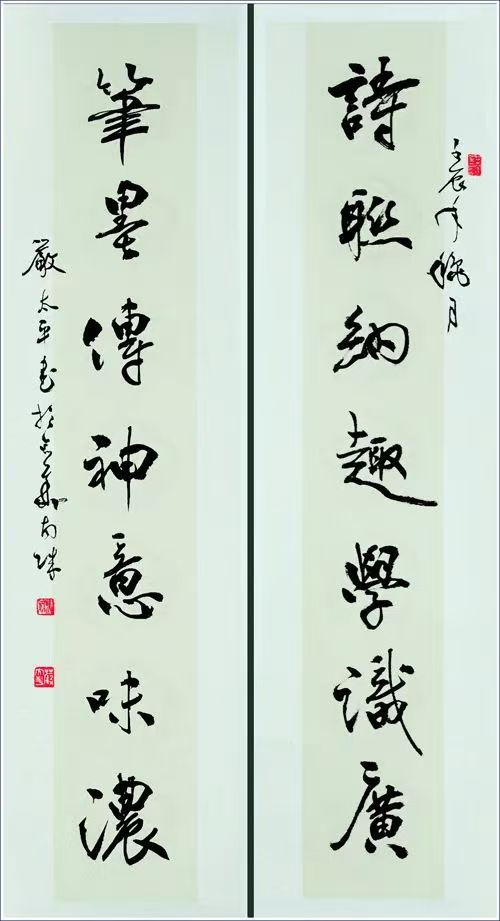 壬辰年
月
詩聯納趣學識廣
筆墨傳神意味濃
嚴太平書於